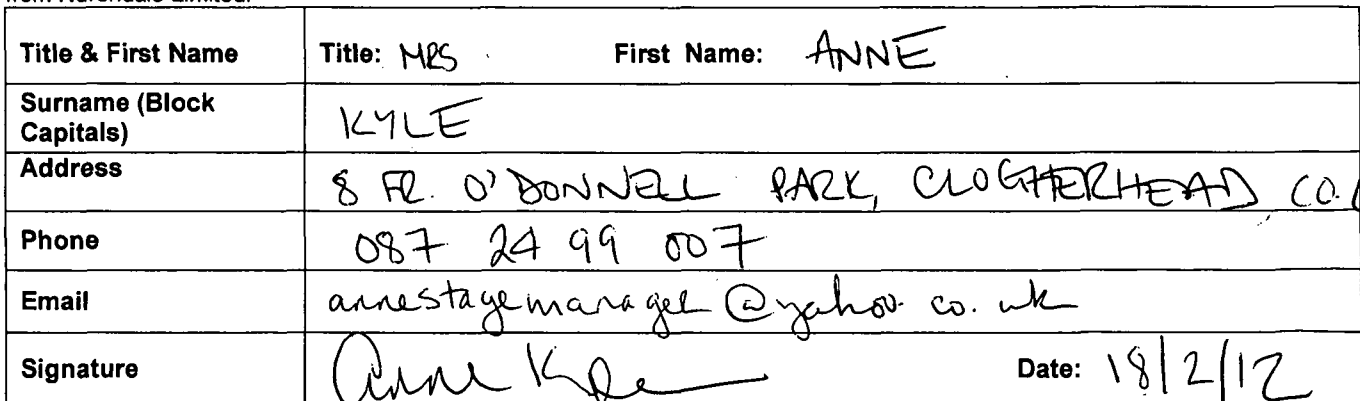 Title & First Name Title: MRS First Name: ANNE
Surname (Block
Capitals) KYLE
Address 8 FR. O'DONNELL PARK, CLOGHERHEAD CO.
Phone 087 24 99 007
Email annestagemanager@yahoo.co.uk
Signature Anne Kyle Date: 18/2/12